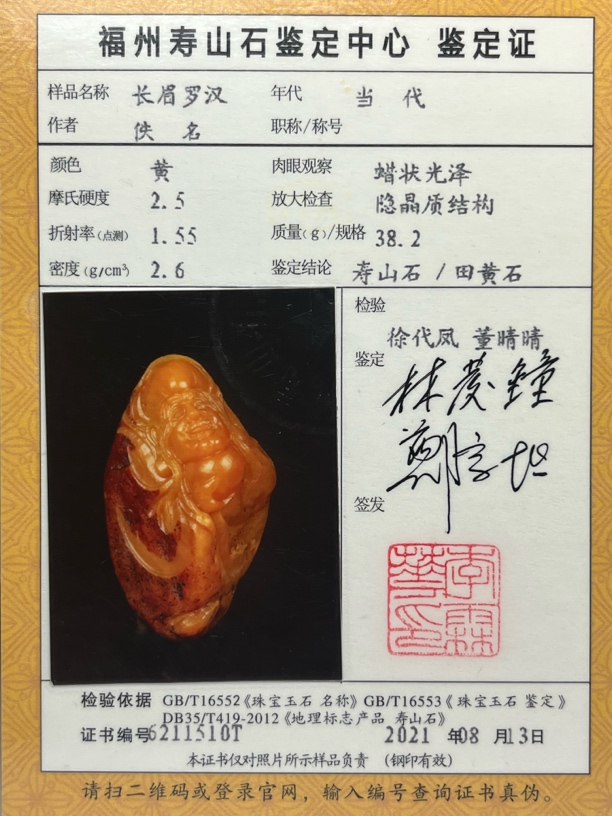 福州寿山石鉴定中心 鉴定证
样品名称 长眉罗汉 年代 当代
作者 佚名 职称/称号
颜色 黄 肉眼观察 蜡状光泽
摩氏硬度 2.5 放大检查 隐晶质结构
折射率(点测) 1.55 质量(g)/规格 38.2
密度(g/cm³) 2.6 鉴定结论 寿山石 / 田黄石
检验
徐代凤 董晴晴
鉴定
签发
检验依据 GB/T16552《珠宝玉石 名称》GB/T16553《珠宝玉石 鉴定》
DB35/T419-2012《地理标志产品 寿山石》
证书编号6211510T 2021 年08 月13日
本证书仅对照片所示样品负责 (钢印有效)
请扫二维码或登录官网，输入编号查询证书真伪。